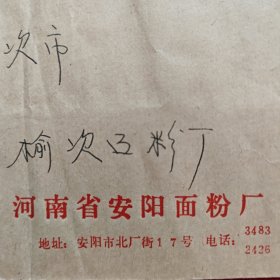 次市
榆次面粉厂
河南省安阳面粉厂
地址：安阳市北厂街17号 电话：3483
2426